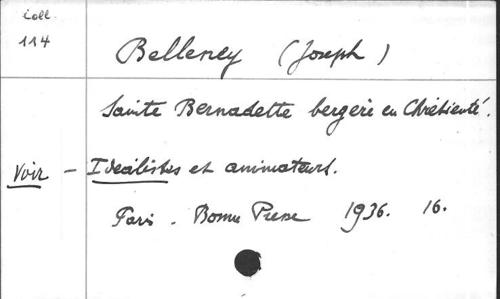 Coll
114
Belleney (Joseph)
Sainte Bernadette bergère en Chrétienté.
Voir – Idéalistes et animateurs.
Paris. Bonne Presse 1936. 16.